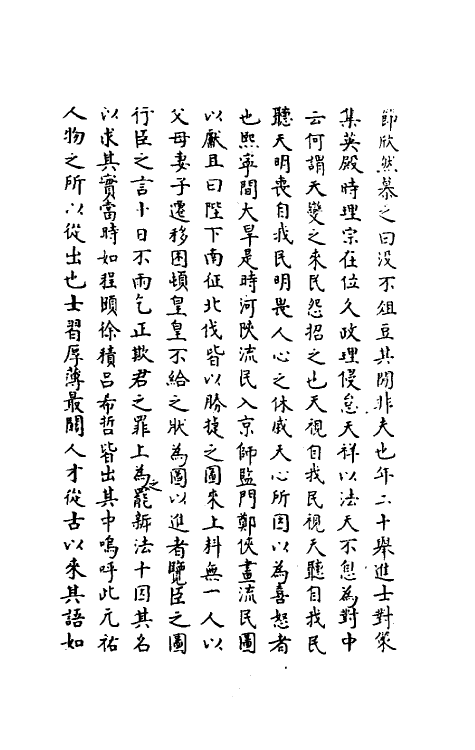 節欣然慕之曰没不俎豆其間非夫也年二十舉進士對策
集英殿時理宗在位久政理侵怠天祥以法天不息為對中
云何謂天變之來民怨招之也天視自我民視天聽自我民
聽天明畏自我民明畏人心之休戚天心所因以為喜怒者
也熙寧間大旱是時河陜流民入京師監門鄭俠畫流民圖
以獻且曰陛下南征北伐皆以勝捷之圖來上料無一人以
父母妻子遷移困頓皇皇不給之狀為圖以進者覽臣之圖
行臣之言十日不雨乞正欺君之罪上為之罷新法十因其名
以求其實當時如程頤徐積呂希哲皆出其中嗚呼此元祐
人物之所以從出也士習厚薄最關人才從古以來其語如